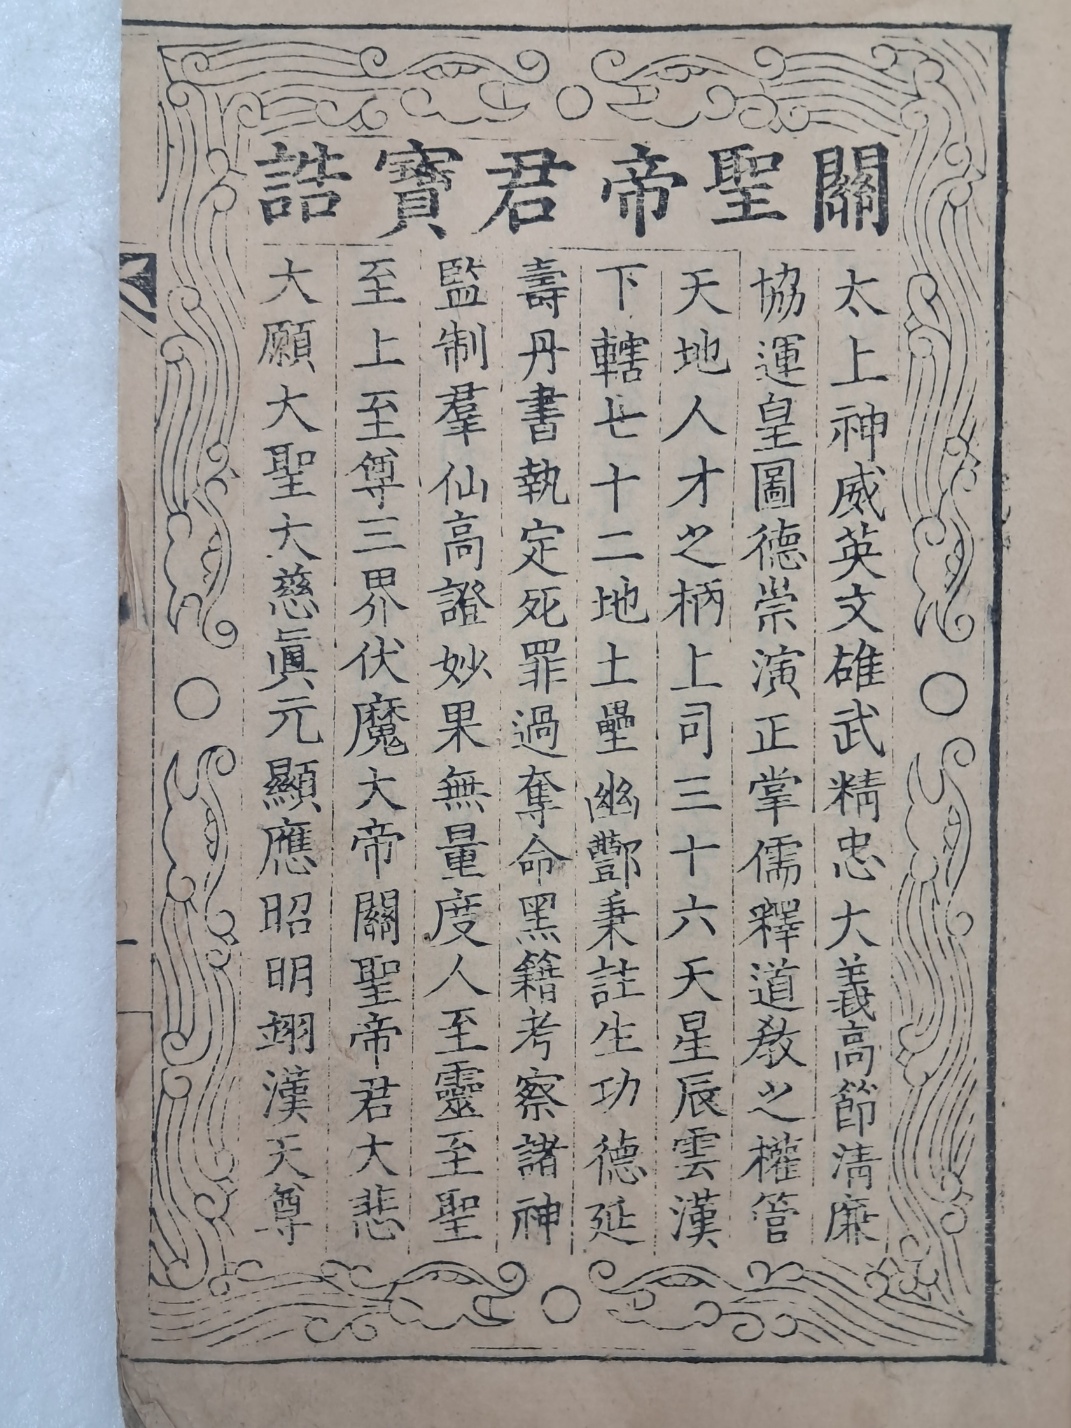 關聖帝君寳誥
太上神威英文雄武精忠大義高節清廉
協運皇圖德崇演正掌儒釋道教之權管
天地人才之柄上司三十六天星辰雲漢
下轄七十二地土壘幽酆秉註生功德延
壽丹書執定死罪過奪命黑籍考察諸神
監制羣仙高證妙果無量度人至靈至聖
至上至尊三界伏魔大帝關聖帝君大悲
大願大聖大慈眞元顯應昭明翊漢天尊